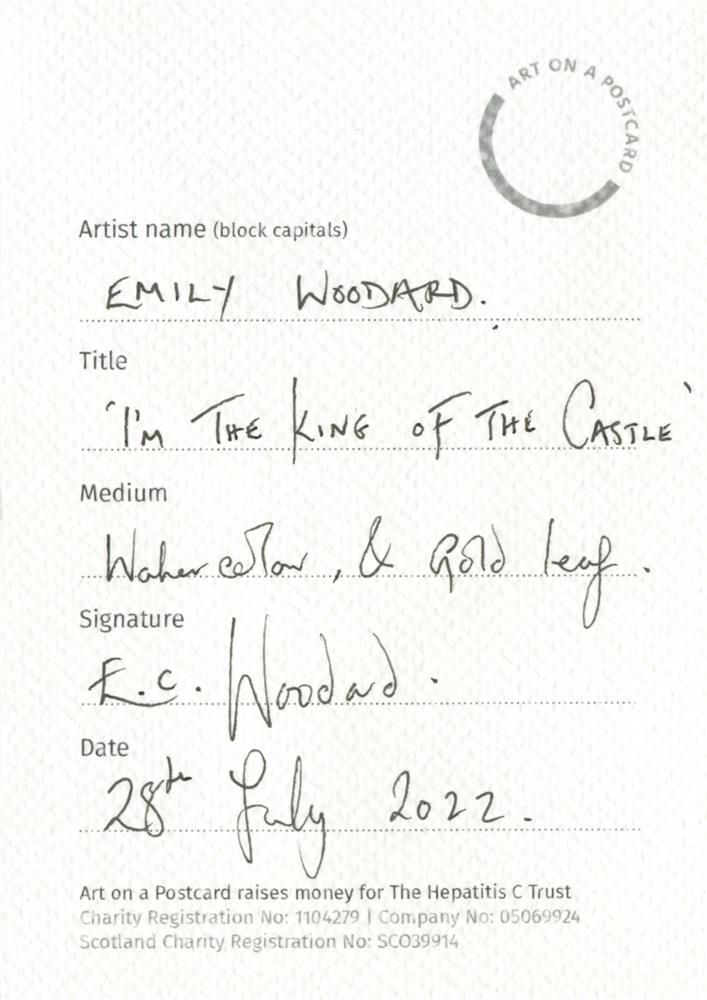 ART ON A POSTCARD
Artist name (block capitals)
EMILY WOODARD.
Title
'I'M THE KING OF THE CASTLE'
Medium
Watercolour, & Gold leaf.
Signature
E.C. Woodard.
Date
28th July 2022.
Art on a Postcard raises money for The Hepatitis C Trust
Charity Registration No: 1104279 | Company No: 05069924
Scotland Charity Registration No: SCO39914